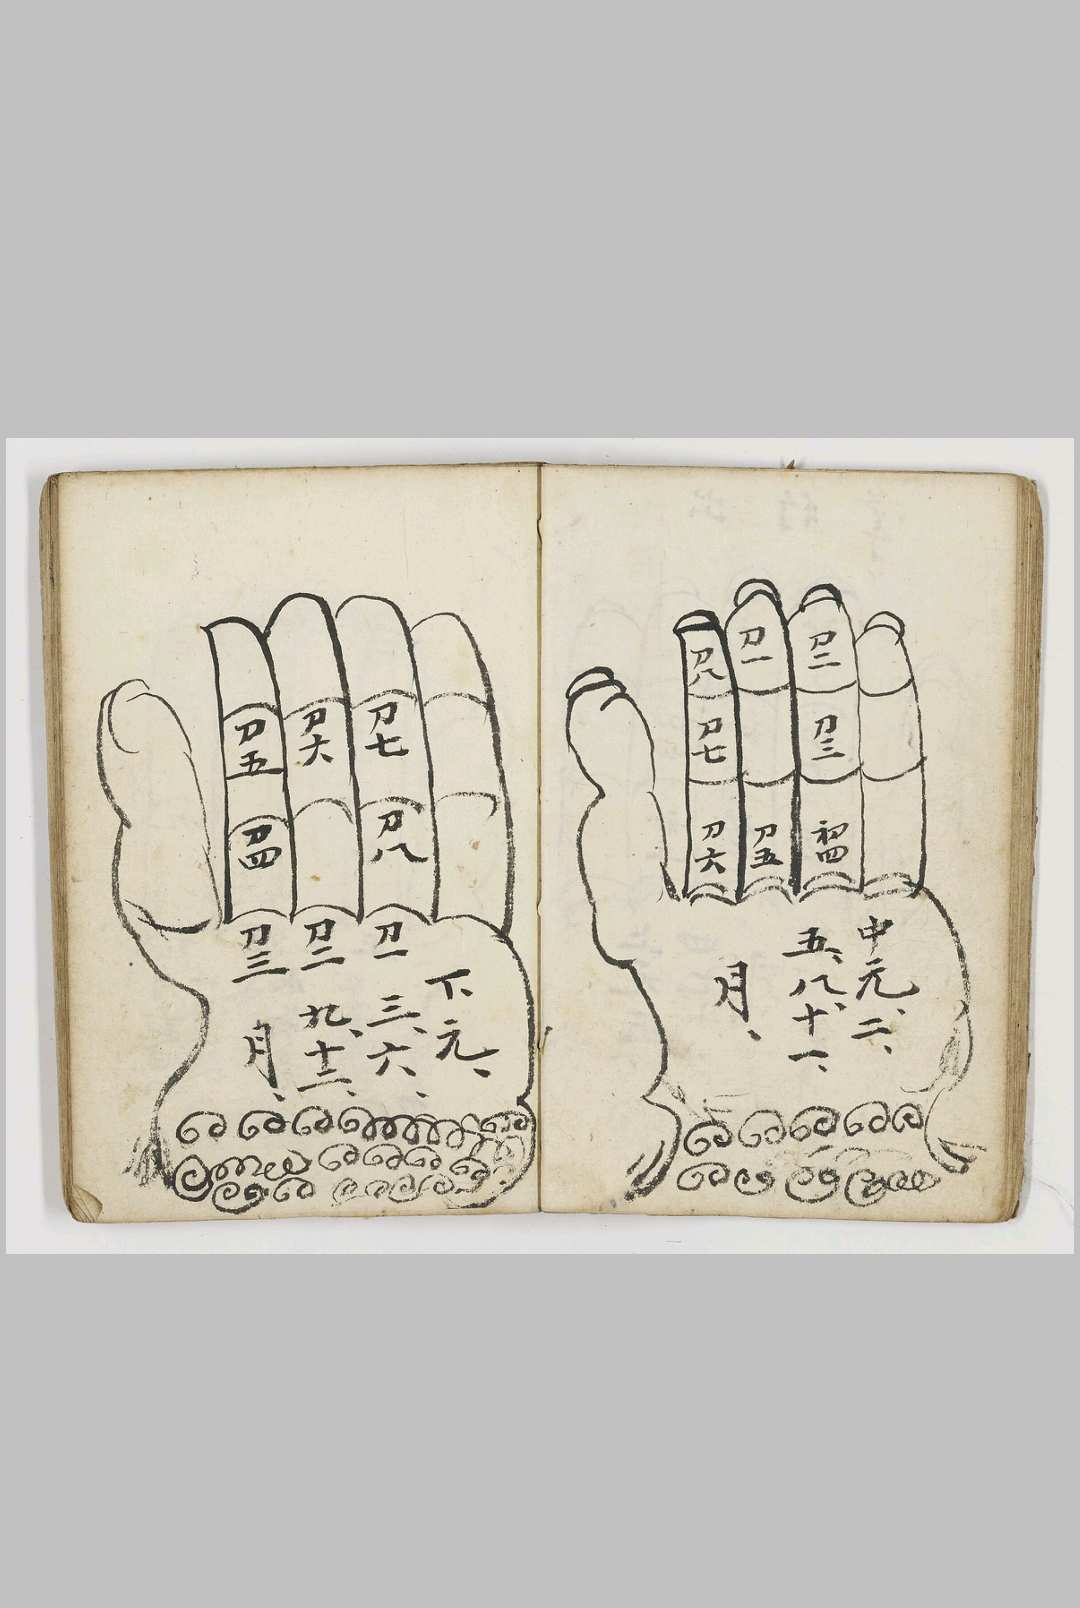 刀二
刀三
初四
刀一
刀五
刀八
刀七
刀六
中元、二、
五、八、十一、
月、
刀七
刀八
刀一
刀六
刀二
刀五
刀四
刀三
下元、
三、六、
九、十二、
月、